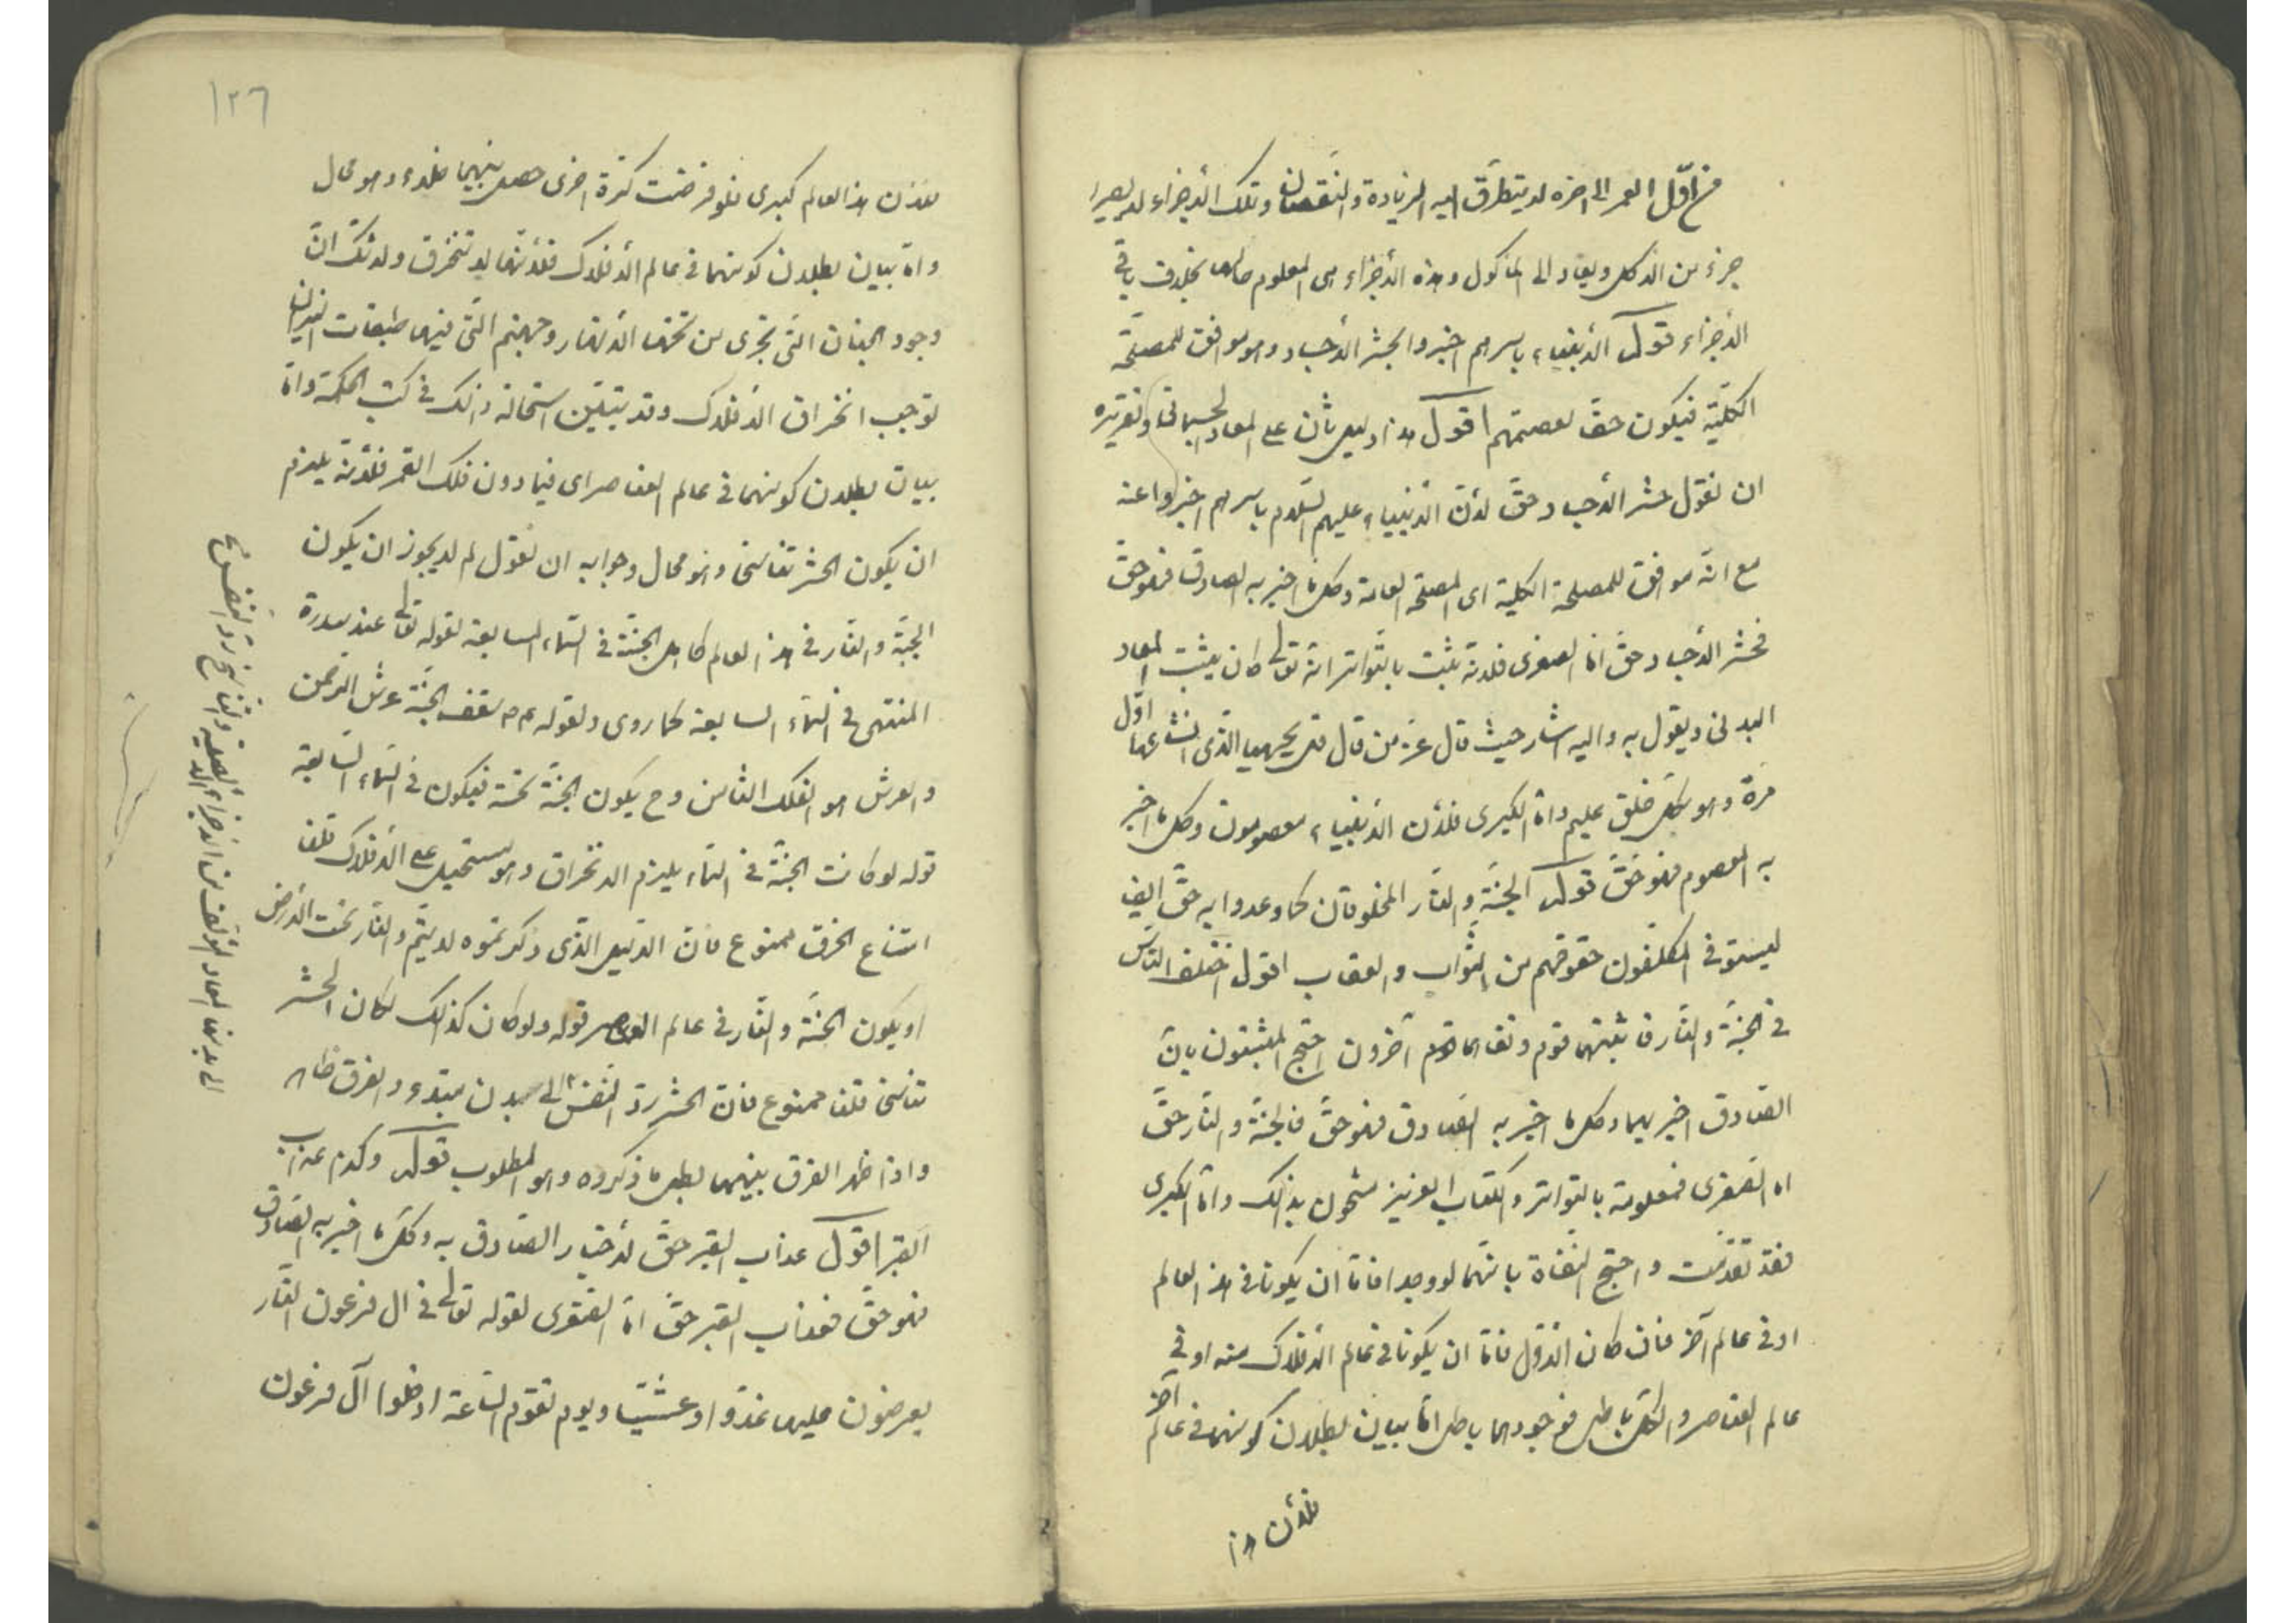 من اوّل العمر الى اخره لا يتطرّق اليه الزيادة والنقصان وتلك الأجزاء لا يصير
جزء من الاكل ويعاد الى المأكول وهذه الأجزاء هى المعلوم بخلاف باقى
الأجزاء قوله الأنبياء باسرهم اخبروا بحشر الأجساد وهو موافق للمصلحة
الكليّة فيكون حقّا لعصمتهم اقول هذا دليل ثان على المعاد الجسمانى وتقريره
ان نقول حشر الأجساد حقّ لأنّ الأنبياء عليهم السّلام باسرهم اخبروا عنه
مع انّه موافق للمصلحة الكلية اى المصلحة العامة وكلّ ما اخبر به الصادق فهو حقّ
فحشر الأجساد حقّ امّا الصغرى فلانه يثبت بالتواتر انه تعالى كان يثبت المعاد
البدنى ويقول به واليه اشار حيث قال عزّ من قال قل يحييها الذى انشأها اوّل
مرّة وهو بكل خلق عليم وامّا الكبرى فلأن الأنبياء معصومون وكل ما اخبر
به المعصوم فهو حقّ قوله الجنّة والنّار المخلوقان كما وعدوا به حقّ ايض
ليستوفى المكلّفون حقوقهم من الثّواب والعقاب اقول اختلف النّاس
فى الجنّة والنّار فاثبتهما قوم ونفاهما قوم آخرون احتج المثبتون بانّ
الصّادق اخبر بهما وكل ما اخبر به الصّادق فهو حقّ فالجنّة والنّار حقّ
امّا الصّغرى فمعلومة بالتواتر والكتاب العزيز مشحون بذلك وامّا الكبرى
فقد تقدّمت واحتج النّفاة بانّهما لو وجدا فامّا ان يكونا فى هذا العالم
او فى عالم آخر فان كان الأوّل فامّا ان يكونا فى عالم الأفلاك منه او فى
عالم العناصر والكلّ باطل فوجودهما باطل امّا بيان بطلان كونهما فى عالم آخر
فلأن هذا
١٢٦
فلأن هذا العالم كبرى فلو فرضت كرة اخرى حصل بينهما خلاء وهو محال
وامّا بيان بطلان كونهما فى عالم الأفلاك فلأنّها لا تنخرق ولا شكّ انّ
وجود الجنان الّتى تجرى من تحتها الأنهار وجهنم الّتى فيها طبقات النيران
توجب انخراق الأفلاك وقد يتبيّن استحالة ذلك فى كتب الحكمة وامّا
بيان بطلان كونهما فى عالم العناصر اى فيما دون فلك القمر فلأنّه يلزم
ان يكون الحشر تناسخا وهو محال وجوابه ان نقول لم لا يجوز ان يكون
الجنّة والنّار فى هذا العالم كما الجنّة فى السّماء السابعة لقوله تعالى عند سدرة
المنتهى فى السّماء السابعة كما روى ولقوله سقف الجنّة عرش الرّحمن
والعرش هو الفلك الثامن وح يكون الجنّة تحته فيكون فى السّماء السّابعة
قوله لو كانت الجنّة فى السّماء يلزم الانخراق وهو مستحيل على الأفلاك قلنا
امتناع الخرق ممنوع فانّ الدّليل الّذى ذكرتموه لا يتمّ والنّار تحت الأرض
او يكون الجنّة والنّار فى عالم العناصر قوله ولو كان كذلك لكان الحشر
تناسخا قلنا ممنوع فانّ الحشر ردّ النّفس الى بدن مبتدء والفرق ظاهر
واذا ظهر الفرق بينهما بطل ما ذكروه وهو المطلوب قوله وكذا عذاب
القبر اقول عذاب القبر حقّ لأخبار الصّادق به وكلّ ما اخبر به الصّادق
فهو حقّ فعذاب القبر حقّ امّا الصّغرى لقوله تعالى فى ال فرعون النّار
يعرضون عليها غدوّا وعشيّا ويوم تقوم السّاعة ادخلوا آل فرعون